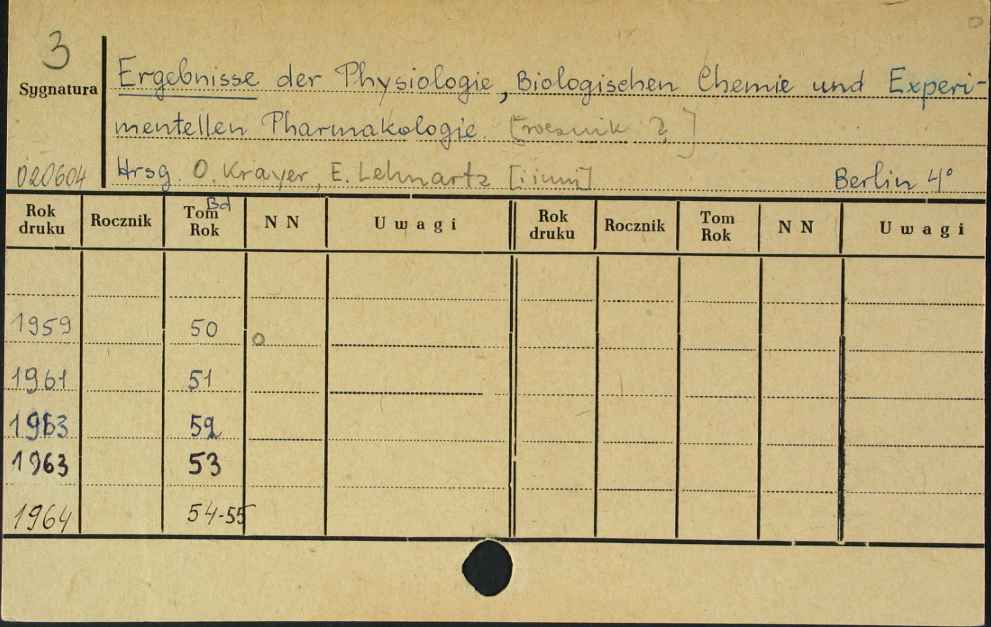 3
Sygnatura
020604
Ergebnisse der Physiologie, Biologischen Chemie und Experi-
mentellen Pharmakologie [rocznik ?]
Hrsg. O. Krayer, E. Lehnartz [i inni] Berlin 4°
Rok druku Rocznik Tom Bd Rok N N Uwagi Rok druku Rocznik Tom Rok N N Uwagi
1959 50
1961 51
1963 52
1963 53
1964 54-55